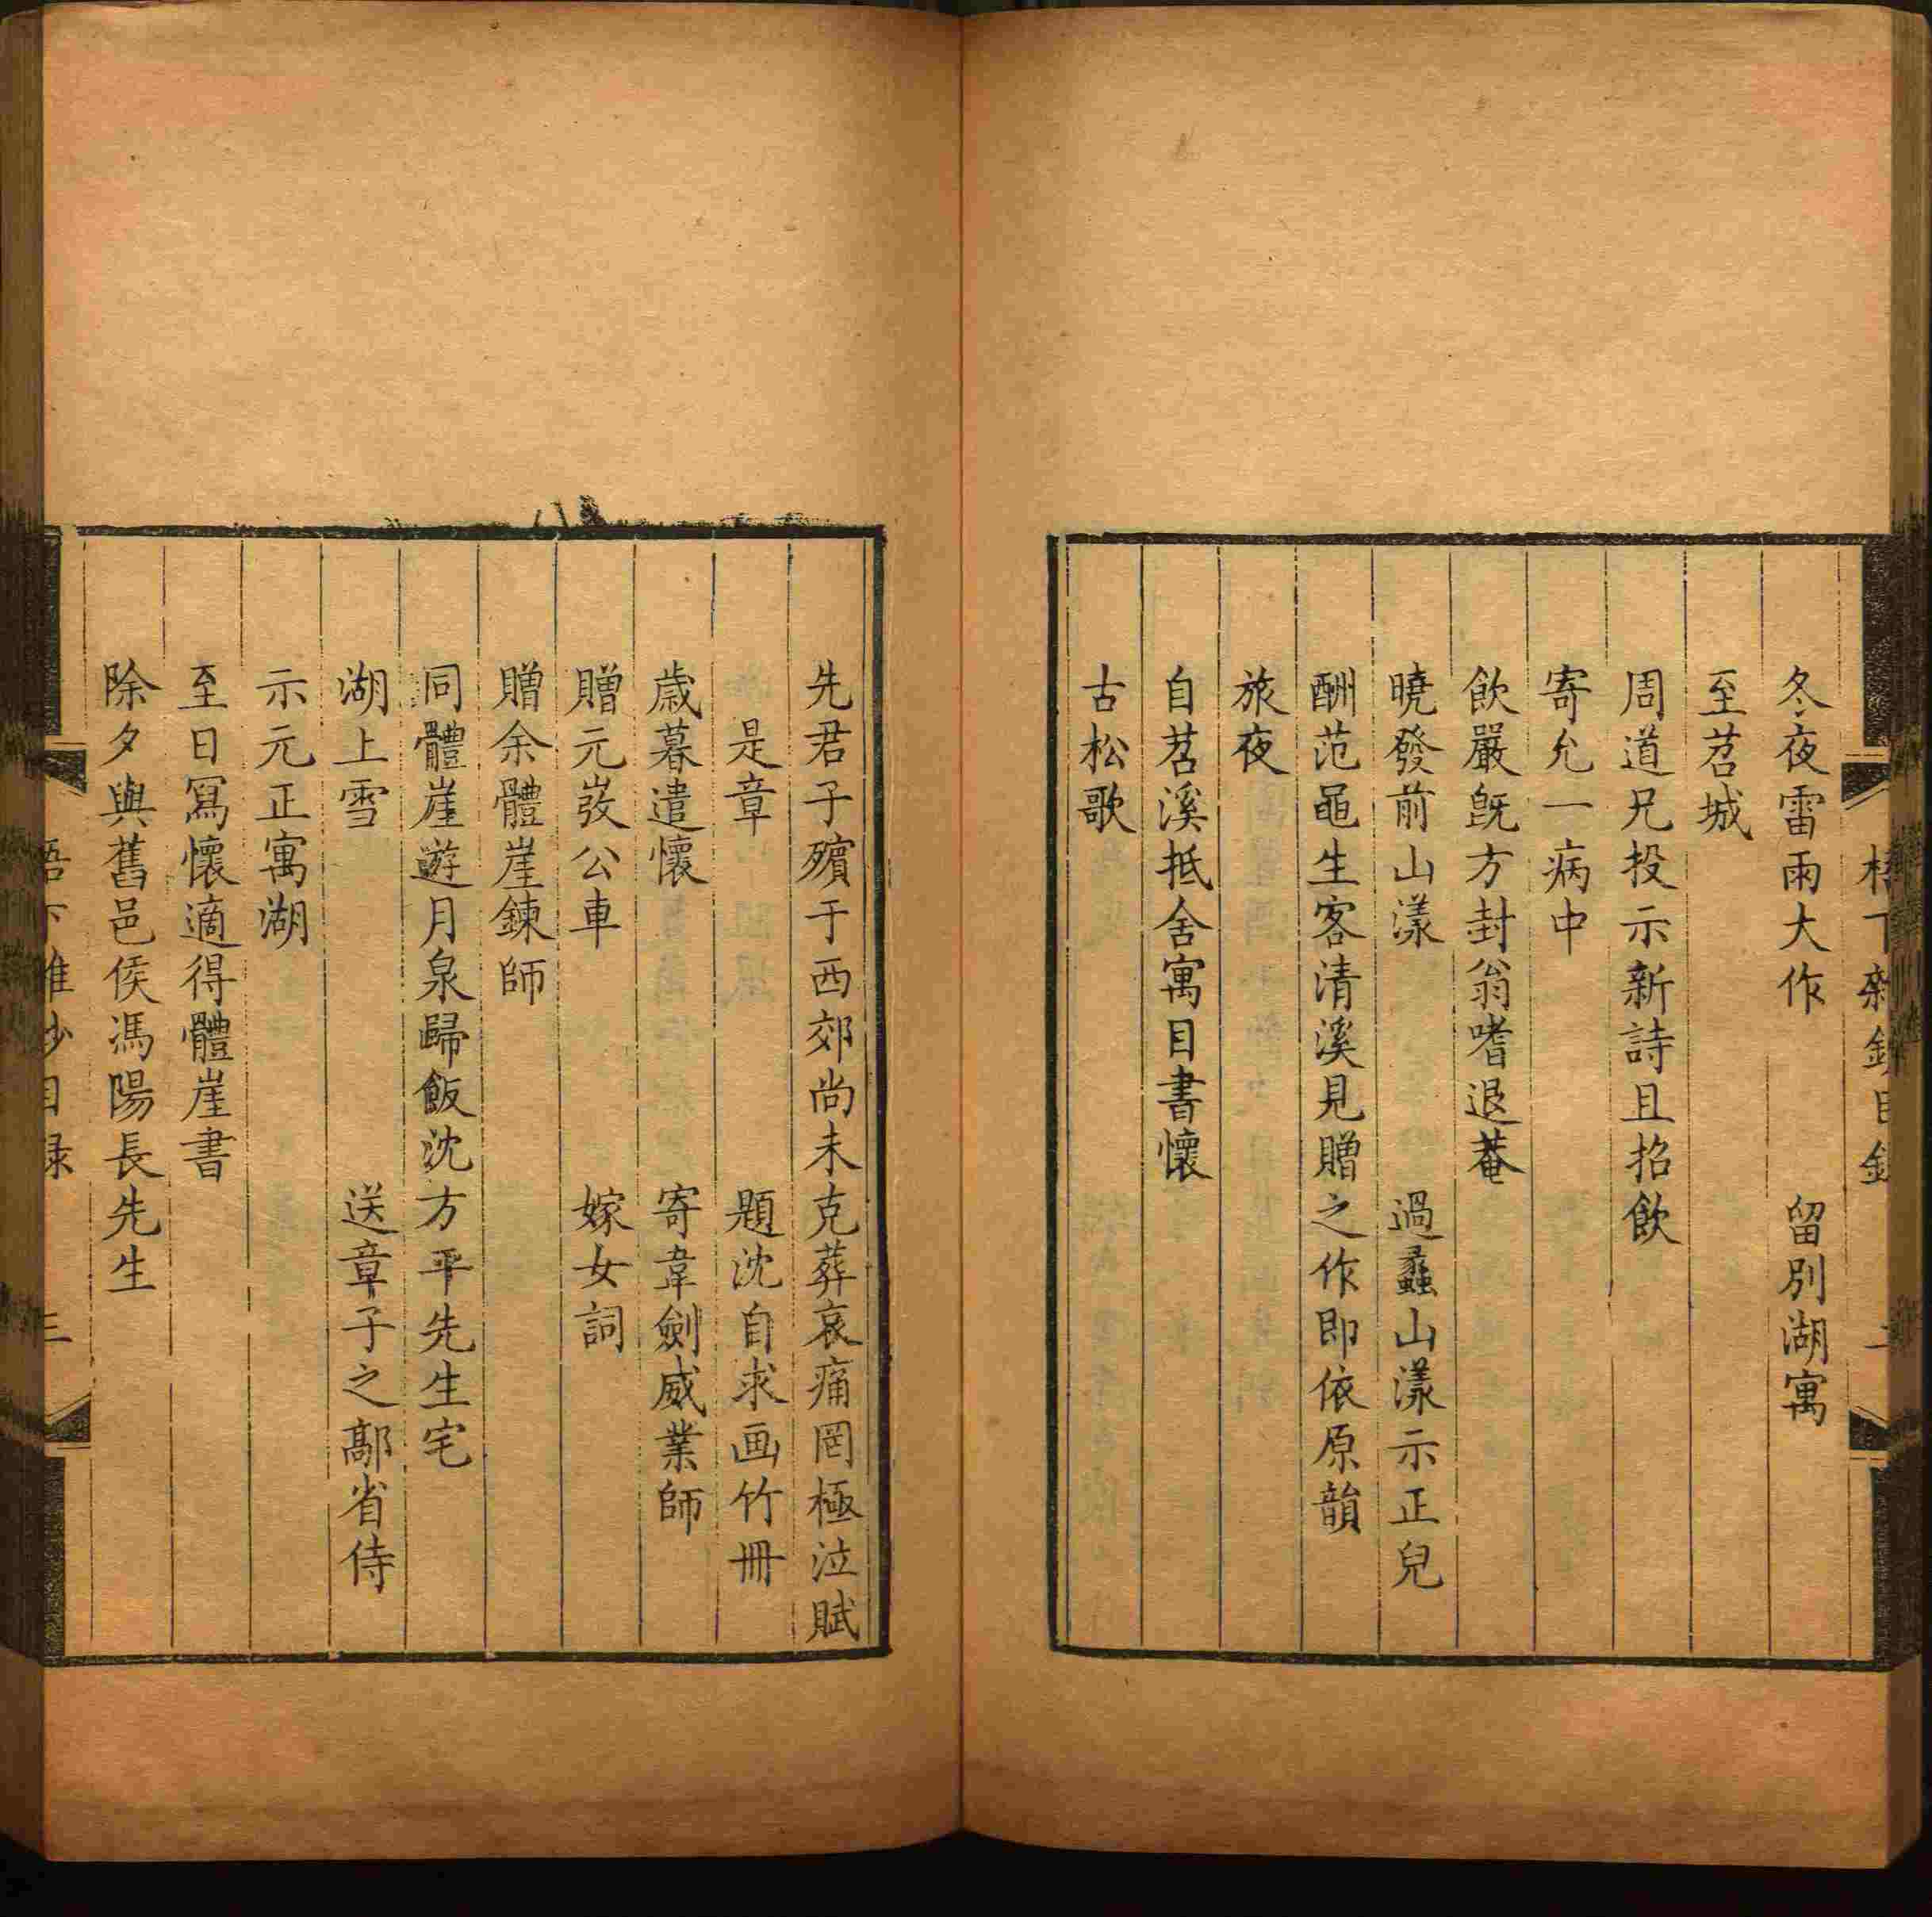 冬夜雷雨大作　留別湖寓
至苕城
周道兄投示新詩且招飲
寄允一病中
飲嚴既方封翁嗜退菴
曉發前山漾　過蠡山漾示正兒
酬范黽生客清溪見贈之作即依原韻
旅夜
自苕溪抵舍寓目書懷
古松歌
先君子殯于西郊尚未克葬哀痛罔極泣賦
是章　題沈自求画竹冊
歲暮遣懷　寄韋劍威業師
贈元㟁公車　嫁女詞
贈余體崖鍊師
同體崖遊月泉歸飯沈方平先生宅
湖上雪　送章子之鄗省侍
示元正寓湖
至日寫懷適得體崖書
除夕與舊邑侯馮陽長先生
三